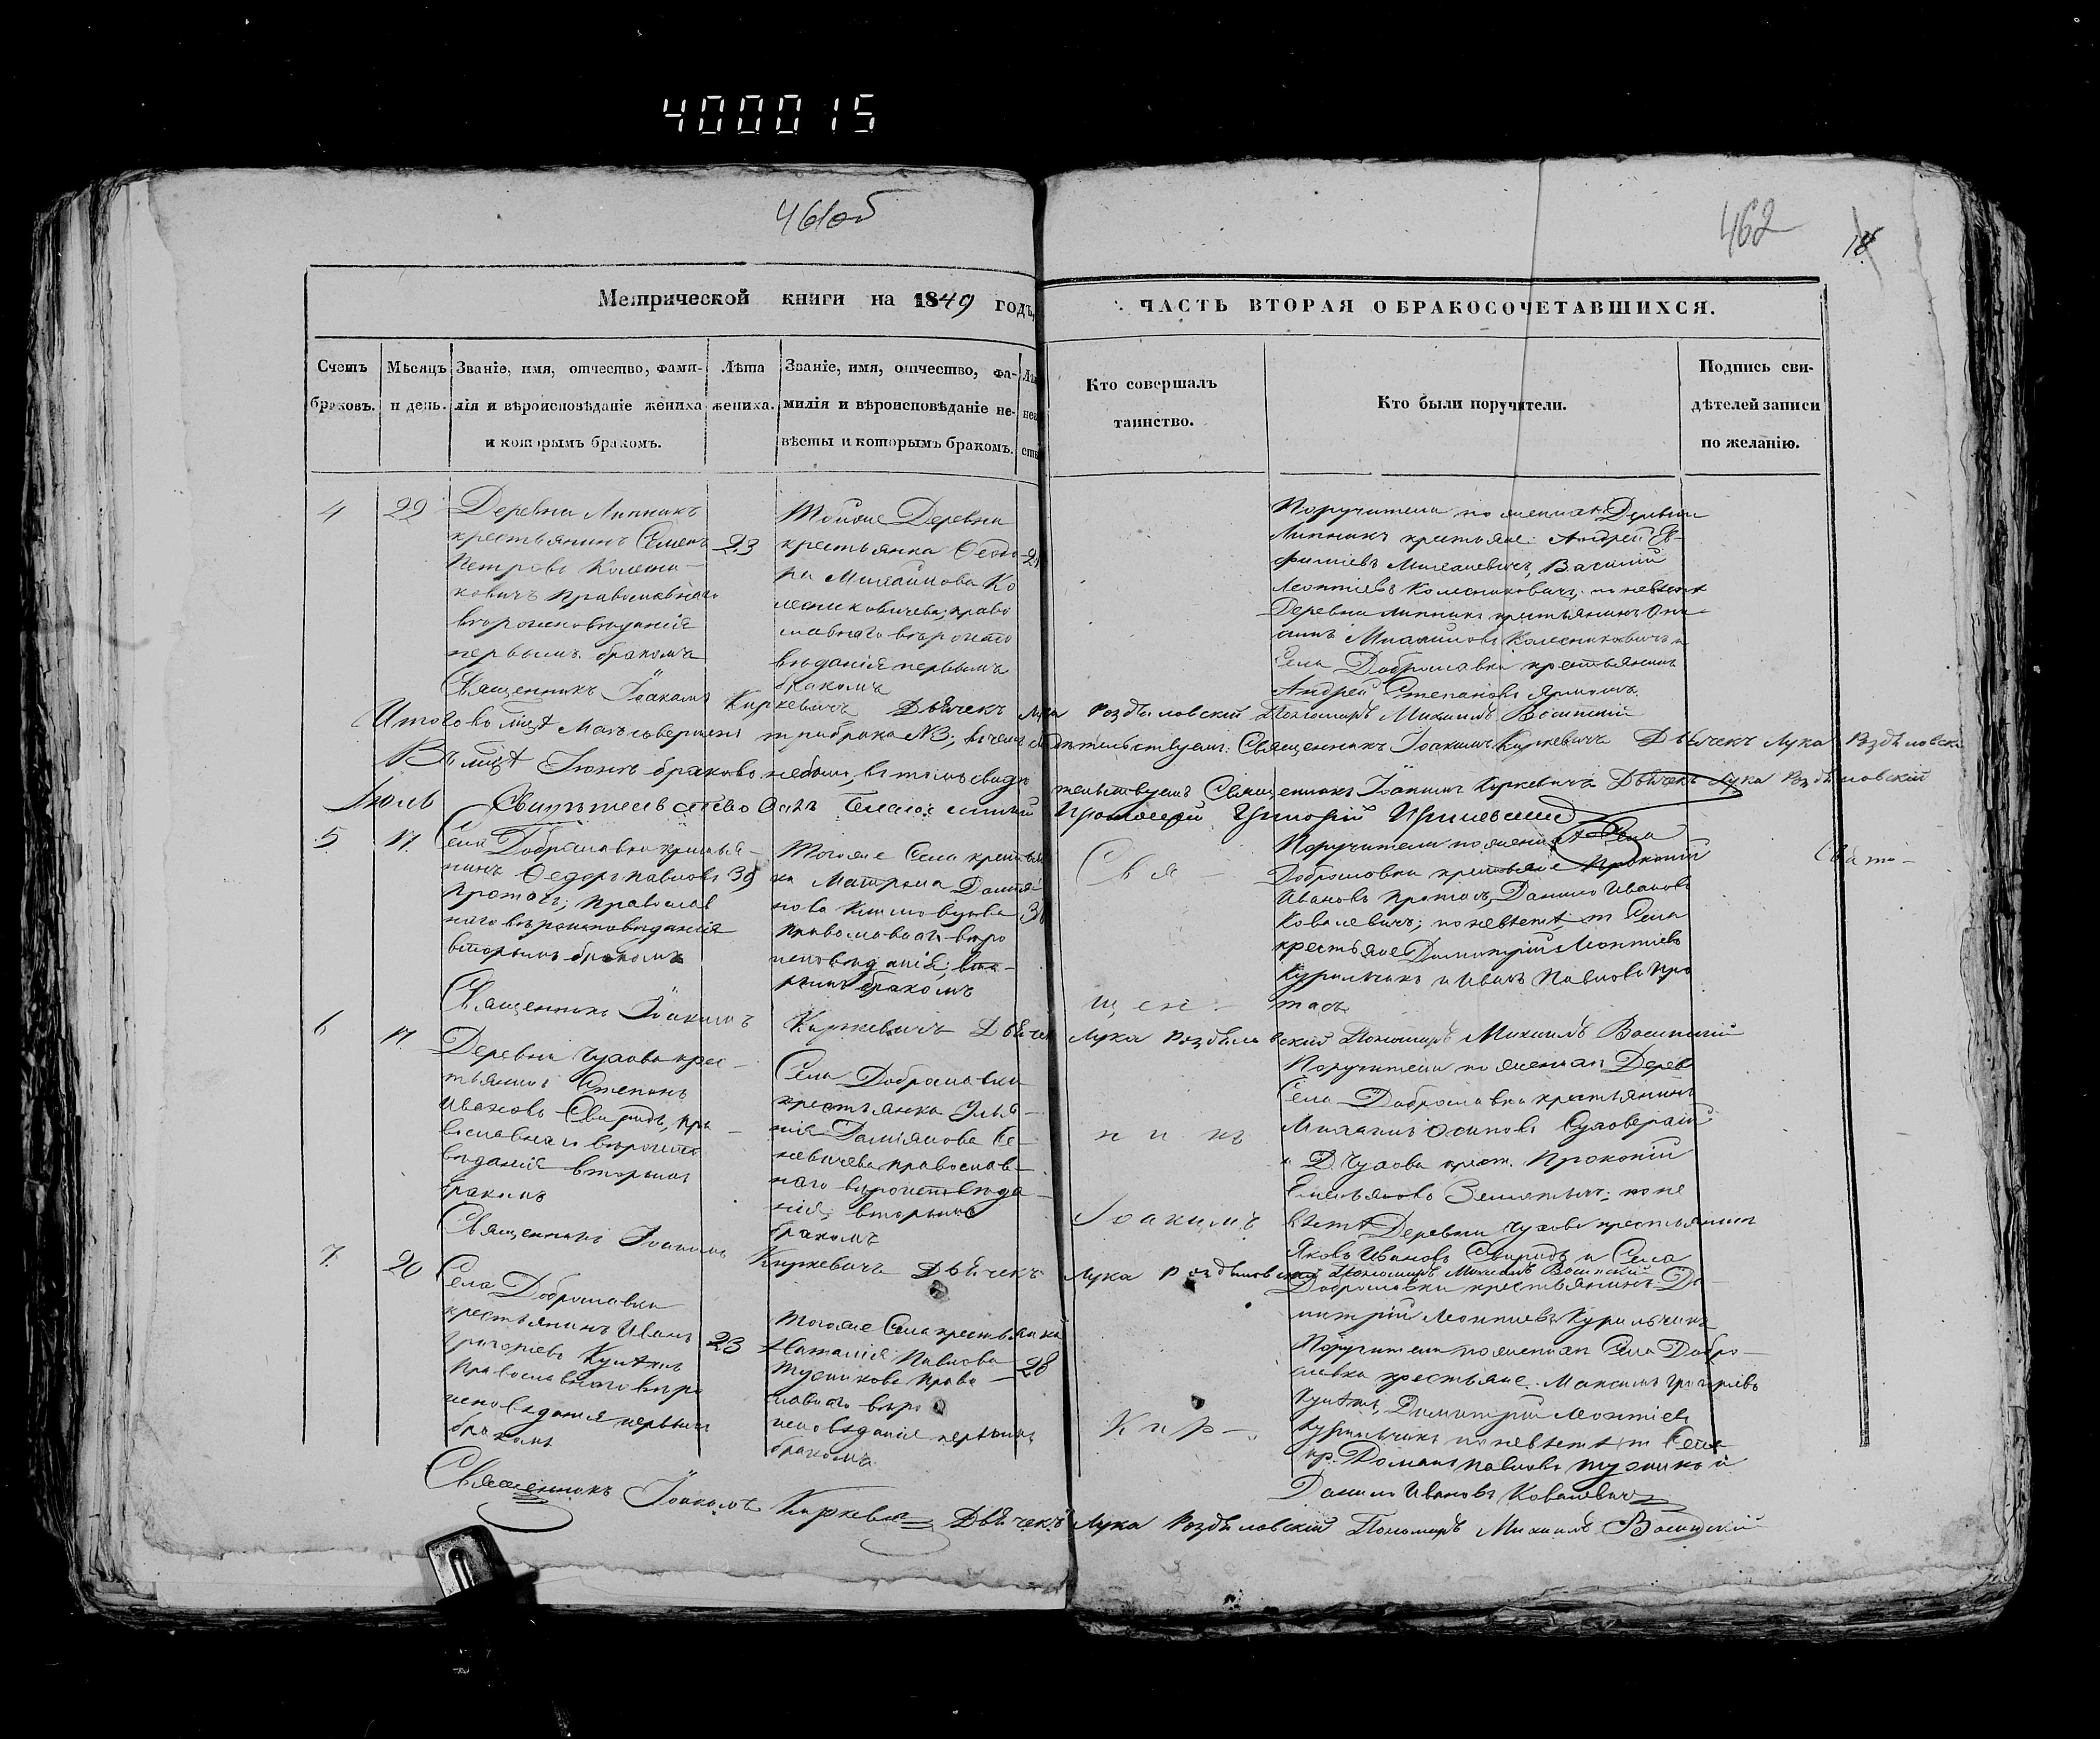 400015
461об
462
18
Метрической книги на 1849 годъ,
ЧАСТЬ ВТОРАЯ О БРАКОСОЧЕТАВШИХСЯ.
Счетъ браковъ.
Мѣсяцъ и день.
Званіе, имя, отчество, фами-
лія и вѣроисповѣданіе жениха
и которымъ бракомъ.
Лѣта
жениха.
Званіе, имя, отчество, фа-
милія и вѣроисповѣданіе не-
вѣсты и которымъ бракомъ.
Кто совершалъ
таинство.
Кто были поручители.
Подпись сви-
дѣтелей записи
по желанію.
4
22
Деревни Липникъ
крестьянинъ Семенъ
Петровъ Колесни-
ковичъ православнаго
вероисповѣданія
первымъ бракомъ
23
Тойже Деревни
крестьянка Ѳеодо
ра Михайлова Ко
лесниковичева, право
славнаго вѣроиспо
вѣданія первымъ
бракомъ
21
Поручители по женихѣ Деревни
Липникъ крестьяне: Андрей
Василій
Леонтіевъ Колесниковичъ; по невѣстѣ
Деревни Липникъ крестьянинъ
Михайловъ Колесниковичъ и
Села Доброславки крестьянинъ
Андрей Степановъ
Священникъ Іоакимъ Киркевичъ Дьячекъ Лука Роздѣловскій Пономарь Михаилъ
Итого въ мцѣ Маѣ совершено три брака №3; въ чемъ свидѣтельствуемъ: Священникъ Іоакимъ Киркевичъ Дьячекъ Лука Роздѣловскій
Въ мцѣ Іюнѣ браковъ небыло, въ томъ свидѣтельствуемъ Священникъ Іоакимъ Киркевичъ Дьячекъ Лука Роздѣловскій
Іюль
5
17
Села Доброславки крестья-
нинъ Ѳедоръ Павловъ
Протасъ; православ
наго вѣроисповѣданія
вторымъ бракомъ
39
Тогоже Села крестьян
ка Матрона Даміа
нова
православнаго вѣро
исповѣданія; вто-
рымъ бракомъ
Свя-
Поручители по женихѣ Села
Доброславки крестьяне Прокопій
Ивановъ Протасъ, Данило Ивановъ
Ковалевичъ; по невѣстѣ т. Села
крестьяне Димитрій Леонтіевъ
Курильчикъ и Иванъ Павловъ Про
тасъ
щен-
Священникъ Іоакимъ Киркевичъ Дьячекъ Лука Роздѣловскій Пономарь Михаилъ
6
17
Деревни Чухова крес-
тьянинъ Степанъ
Ивановъ Свиридъ, пра-
вославнаго вѣроиспо
вѣданія вторымъ
бракомъ
Села Доброславки
крестьянка Улья-
нія Даміянова
православ-
наго вѣроисповѣда-
нія; вторымъ
бракомъ
никъ
Іоакимъ
Поручители по женихѣ Дерев
Села Доброславки крестьянинъ
Осиповъ
и Д. Чухова крест. Прокопій
по не
вѣстѣ Деревни Чухова крестьянинъ
Яковъ Ивановъ Свиридъ и Села
Доброславки крестьянинъ Ди-
митрій Леонтіевъ Курильчикъ
Священникъ Іоакимъ Киркевичъ Дьячекъ Лука Роздѣловскій Пономарь Михаилъ
7
20
Села Доброславки
крестьянинъ Иванъ
Григорьевъ
Православнаго вѣро
исповѣданія первымъ
бракомъ
23
Тогоже Села крестьянка
Наталія Павлова
Право
славнаго вѣро
исповѣданія первымъ
бракомъ
28
Кир-
Поручители по женихѣ Села Добро-
славки крестьяне Максимъ Григорьевъ
Димитрій Леонтіевъ
Курильчикъ по невѣстѣ т. Села
кр. Романъ Павловъ
Данило Ивановъ Ковалевичъ
Священникъ Іоакимъ Киркевичъ Дьячекъ Лука Роздѣловскій Пономарь Михаилъ